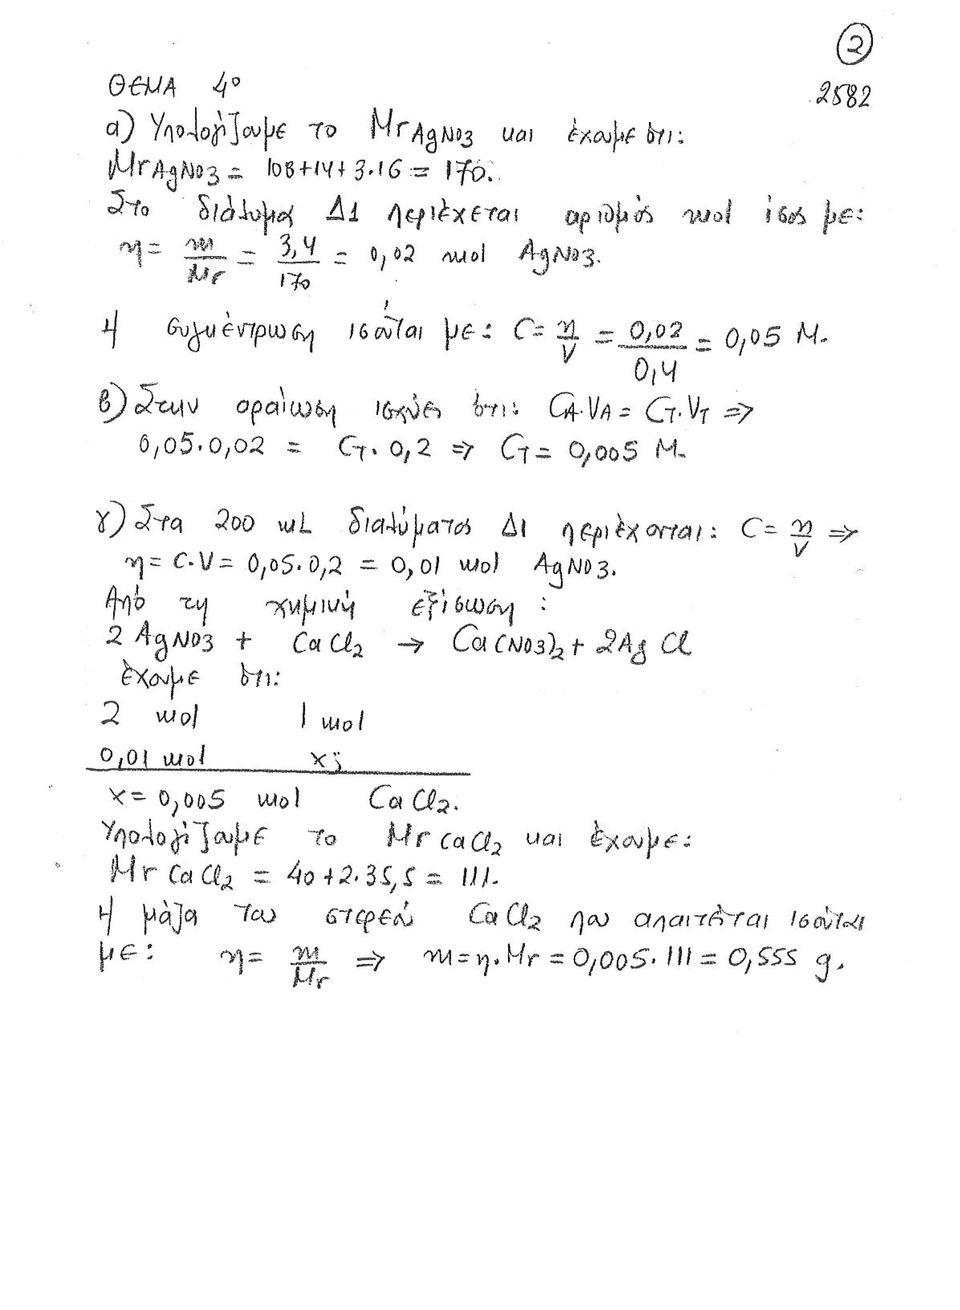 2
ΘΕΜΑ 4ο
2582
α) Υπολογίζουμε το Mr AgNO3 και έχουμε ότι:
Mr AgNO3 = 108+14+3·16 = 170.
Στο διάλυμα Δ1 περιέχεται αριθμός mol ίσος με:
η = m/Mr = 3,4/170 = 0,02 mol AgNO3.
Η συγκέντρωση ισούται με: C = η/V = 0,02/0,4 = 0,05 M.
β) Στην αραίωση ισχύει ότι: CA·VA = CT·VT ⇒
0,05·0,02 = CT·0,2 ⇒ CT = 0,005 M.
γ) Στα 200 mL διαλύματος Δ1 περιέχονται: C = η/V ⇒
η = C·V = 0,05·0,2 = 0,01 mol AgNO3.
Από τη χημική εξίσωση:
2 AgNO3 + CaCl2 → Ca(NO3)2 + 2AgCl
έχουμε ότι:
2 mol 1 mol
0,01 mol x;
x = 0,005 mol CaCl2.
Υπολογίζουμε το Mr CaCl2 και έχουμε:
Mr CaCl2 = 40+2·35,5 = 111.
Η μάζα του στερεού CaCl2 που απαιτείται ισούται
με: η = m/Mr ⇒ m = η·Mr = 0,005·111 = 0,555 g.